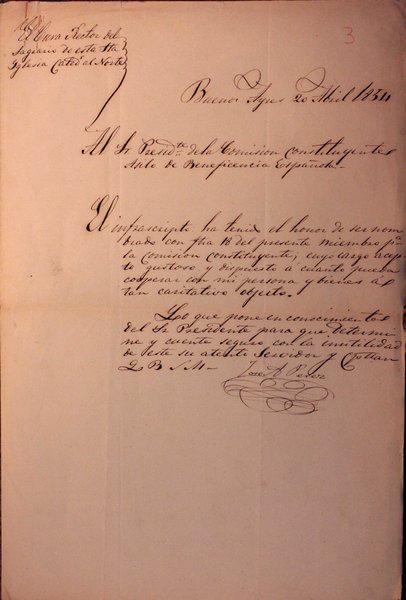 El Cura Rector del
Sagrario de esta Sta
Iglesia Catedral Norte
3
Buenos Ayres 20 Abril 1854
Al Sr Presidte de la Comision Constituyente
Asilo de Beneficencia Española
El infrascripto ha tenido el honor de ser nom
brado con fha 18 del presente miembro pa
la Comision constituyente; cuyo cargo acep
to gustoso y dispuesto a cuanto pueda
cooperar con mi persona y bienes á
tan caritativo objeto.
Lo que pone en conocimiento
del Sr Presidente para que determi
ne y cuente seguro con la inutilidad
de este su atento Servidor y
Q B S M
Jose A Perez